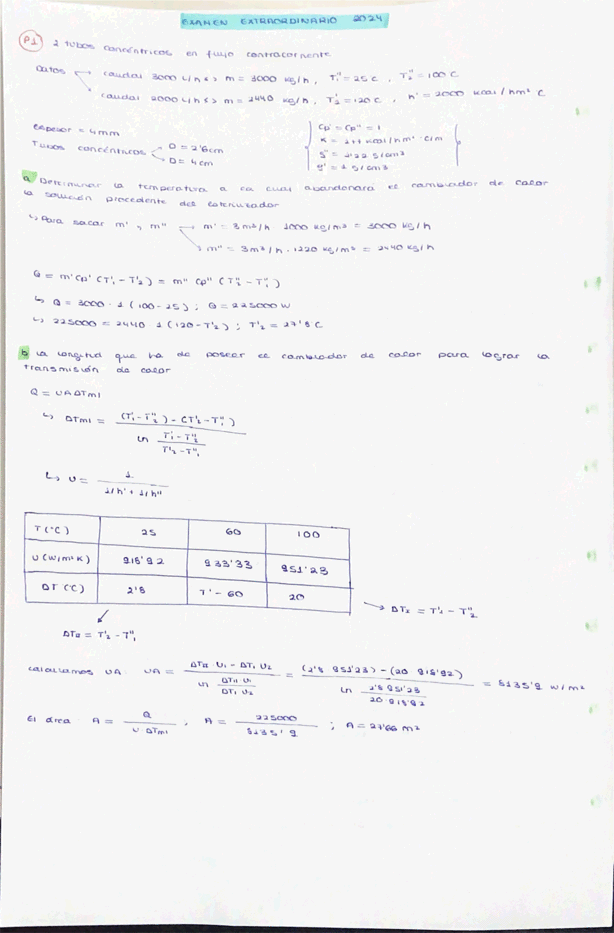 EXAMEN EXTRAORDINARIO 2024
P1 2 tubos concéntricos en flujo contracorriente
Datos
caudal 3000 L/h <> m = 3000 kg/h, T''₁ = 25 C, T''₂ = 100 C
caudal 2000 L/h <> m = 2440 kg/h, T'₁ = 120 C, h' = 2000 kcal/hm² C
espesor = 4mm
Tubos concéntricos
D = 2'6cm
D = 4 cm
Cp' = Cp'' = 1
ρ'' = 1'22 g/cm³
ρ' = 1 g/cm³
a Determinar la temperatura a la cual abandonará el cambiador de calor
la solución procedente del
↳ Para sacar m' y m''
m' = 3 m³/h 1000 kg/m³ = 3000 kg/h
m'' = 3m³/h · 1220 kg/m³ = 2440 kg/h
Q = m' Cp' (T'₁ - T'₂) = m'' Cp'' (T''₂ - T''₁)
↳ Q = 3000 · 1 (100 - 25) ; Q = 225000 W
↳ 225000 = 2440 1 (120 - T'₂) ; T'₂ = 27'8 C
b La longitud que ha de poseer el cambiador de calor para lograr la
transmisión de calor
Q = UA ΔTml
↳ ΔTml = (T'₁ - T''₂) - (T'₂ - T''₁) / ln T'₁ - T''₂ / T'₂ - T''₁
↳ U = 1 / 1/h' + 1/h''
T (°C) 25 60 100
U (W/m²K) 915'92 933'33 951'23
ΔT (°C) 2'8 T' - 60 20
→ ΔT₂ = T'₁ - T''₂
ΔT₁ = T'₂ - T''₁
Calculamos UA: UA = ΔT₁ U₁ - ΔT₁ U₂ / ln ΔT₁ U₁ / ΔT₁ U₂ = (2'8 951'23) - (20 915'92) / ln 2'8 951'23 / 20 915'92 = 8135'9 W/m²
El área: A = Q / U ΔTml ; A = 225000 / 8135'9 ; A = 27'66 m²